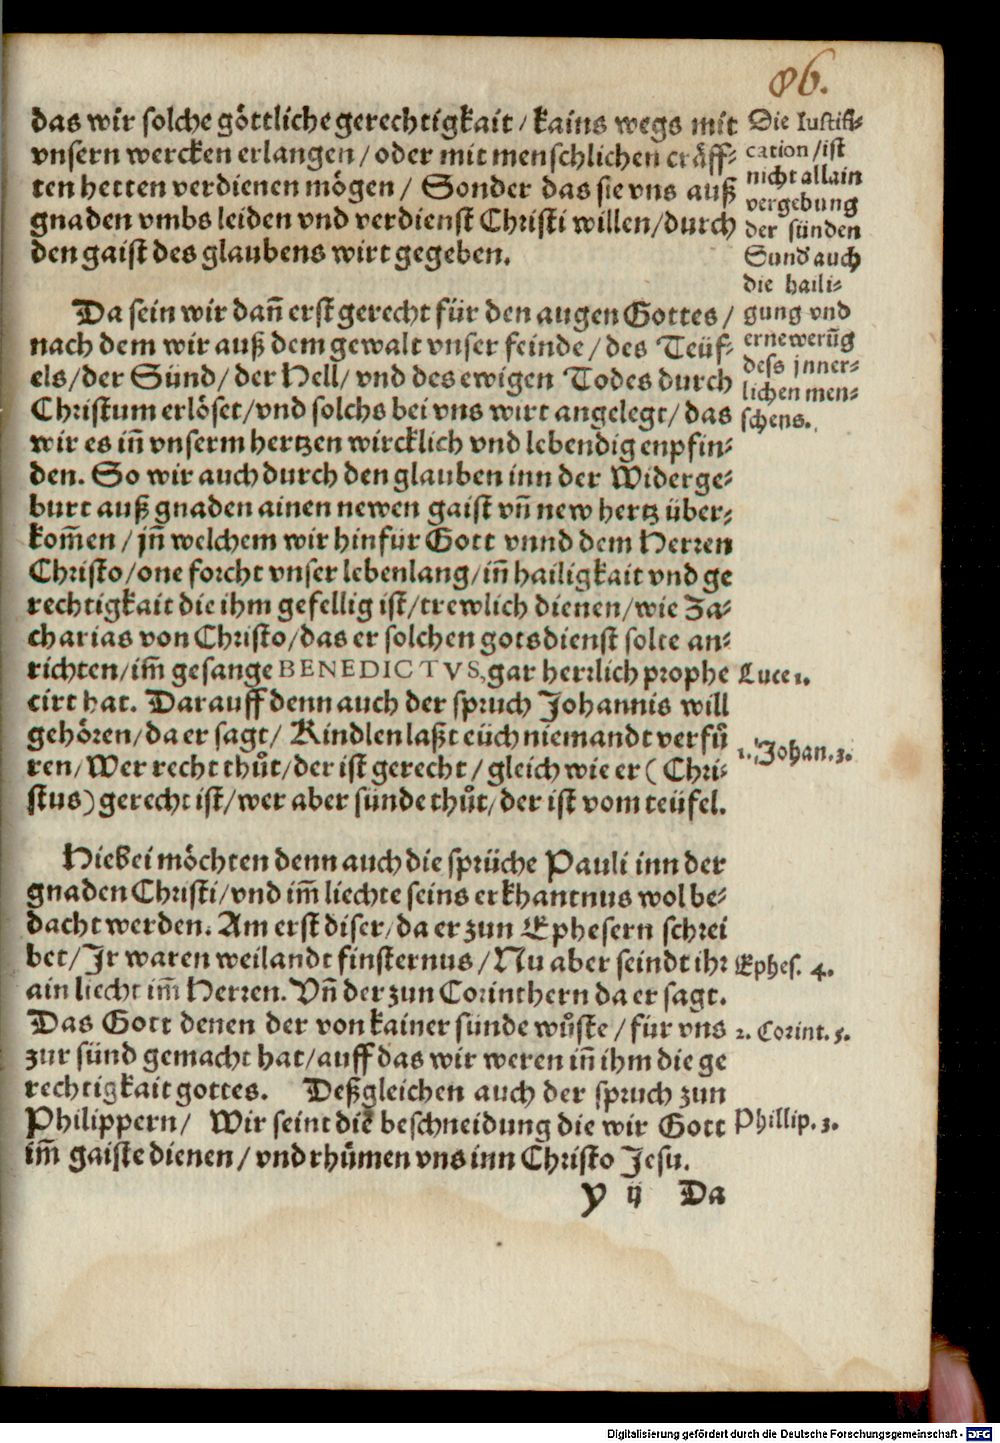 86.
das wir solche göttliche gerechtigkait / kains wegs mit
vnsern wercken erlangen / oder mit menschlichen cräff-
ten hetten verdienen mögen / Sonder das sie vns auß
gnaden vmbs leiden vnd verdienst Christi willen / durch
den gaist des glaubens wirt gegeben.
Die Iustifi-
cation / ist
nicht allain
vergebung
der sünden
Sund auch
die haili-
gung vnd
ernewerũg
dess jnner-
lichen men-
schens.
Da sein wir dañ erst gerecht für den augen Gottes /
nach dem wir auß dem gewalt vnser feinde / des Teüf-
els / der Sünd / der Hell / vnd des ewigen Todes durch
Christum erlöset / vnd solchs bei vns wirt angelegt / das
wir es iñ vnserm hertzen wircklich vnd lebendig enpfin-
den. So wir auch durch den glauben inn der Widerge-
burt auß gnaden ainen newen gaist vñ new hertz über-
kom̃en / jñ welchem wir hinfür Gott vnnd dem Herren
Christo / one forcht vnser lebenlang / iñ hailigkait vnd ge
rechtigkait die ihm gefellig ist / trewlich dienen / wie Za-
charias von Christo / das er solchen gotsdienst solte an-
richten / im̃ gesange BENEDICTVS, gar herrlich prophe
cirt hat. Darauff denn auch der spruch Johannis will
gehören / da er sagt / Kindlen laßt eüch niemandt verfů
ren / Wer recht thůt / der ist gerecht / gleich wie er ( Chri-
stus ) gerecht ist / wer aber sünde thůt / der ist vom teüfel.
Luce 1.
1. Johan. 3.
Hiebei möchten denn auch die sprüche Pauli inn der
gnaden Christi / vnd im̃ liechte seins erkhantnus wol be-
dacht werden. Am erst diser / da er zun Ephesern schrei
bet / Ir waren weilandt finsternus / Nu aber seindt ihr
ain liecht im̃ Herren. Vñ der zun Corinthern da er sagt.
Das Gott denen der von kainer sünde wůste / für vns
zur sünd gemacht hat / auff das wir weren iñ ihm die ge
rechtigkait gottes. Deßgleichen auch der spruch zun
Philippern / Wir seint die beschneidung die wir Gott
im̃ gaiste dienen / vnd rhůmen vns inn Christo Jesu.
Ephes. 4.
2. Corint. 5.
Phillip. 3.
y ij Da
Digitalisierung gefördert durch die Deutsche Forschungsgemeinschaft - DFG